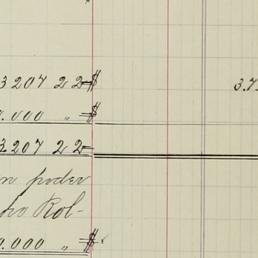 3207 22 $ 3.7
0.000 „ $
3.207 22
n poder
ho Rol-
0.000 „ $